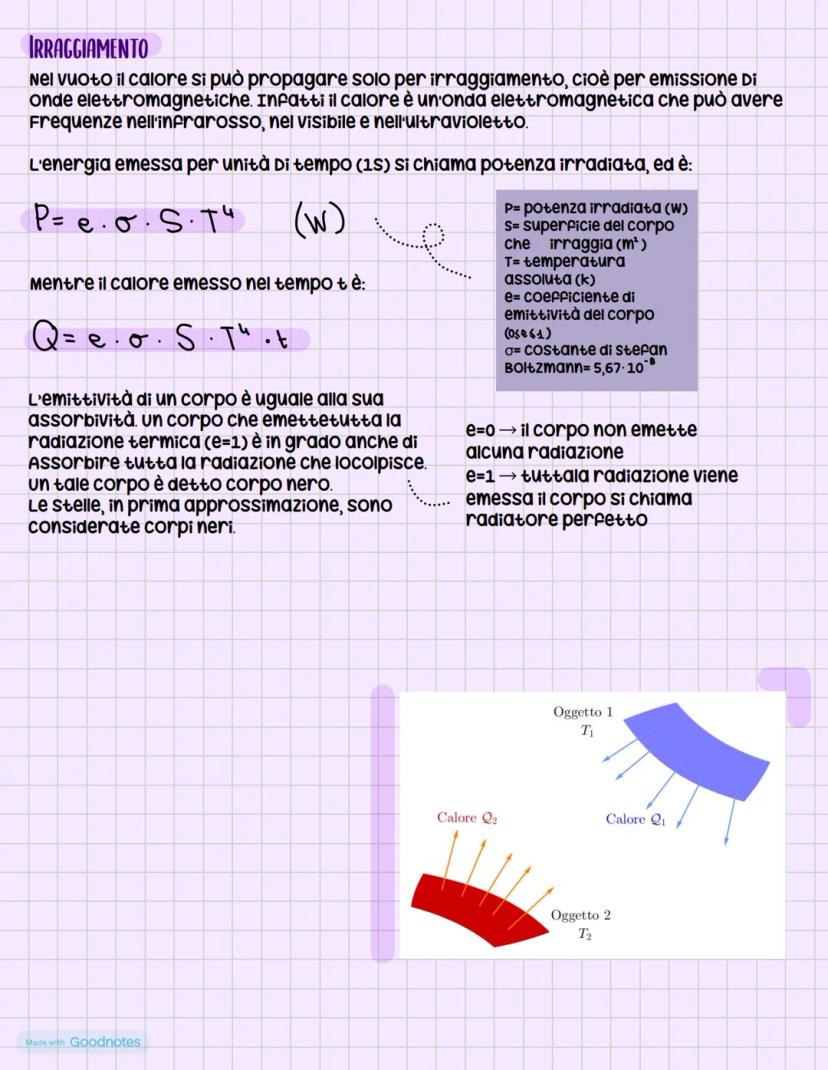 IRRAGGIAMENTO
Nel vuoto il calore si può propagare solo per irraggiamento, cioè per emissione di
onde elettromagnetiche. Infatti il calore è un'onda elettromagnetica che può avere
frequenze nell'infrarosso, nel visibile e nell'ultravioletto.
L'energia emessa per unità di tempo (1s) si chiama potenza irradiata, ed è:
P= e · σ · S · T⁴ (W)
P= potenza irradiata (W)
S= superficie del corpo
che irraggia (m²)
T= temperatura
assoluta (k)
e= coefficiente di
emittività del corpo
(0≤e≤1)
σ= costante di stefan
Boltzmann= 5,67·10⁻⁸
Mentre il calore emesso nel tempo t è:
Q= e · σ · S · T⁴ · t
L'emittività di un corpo è uguale alla sua
assorbività. un corpo che emettetutta la
radiazione termica (e=1) è in grado anche di
Assorbire tutta la radiazione che locolpisce.
un tale corpo è detto corpo nero.
Le stelle, in prima approssimazione, sono
considerate corpi neri.
e=0 → il corpo non emette
alcuna radiazione
e=1 → tuttala radiazione viene
emessa il corpo si chiama
radiatore perfetto
Oggetto 1
T₁
Calore Q₂
Calore Q₁
Oggetto 2
T₂
Made with Goodnotes